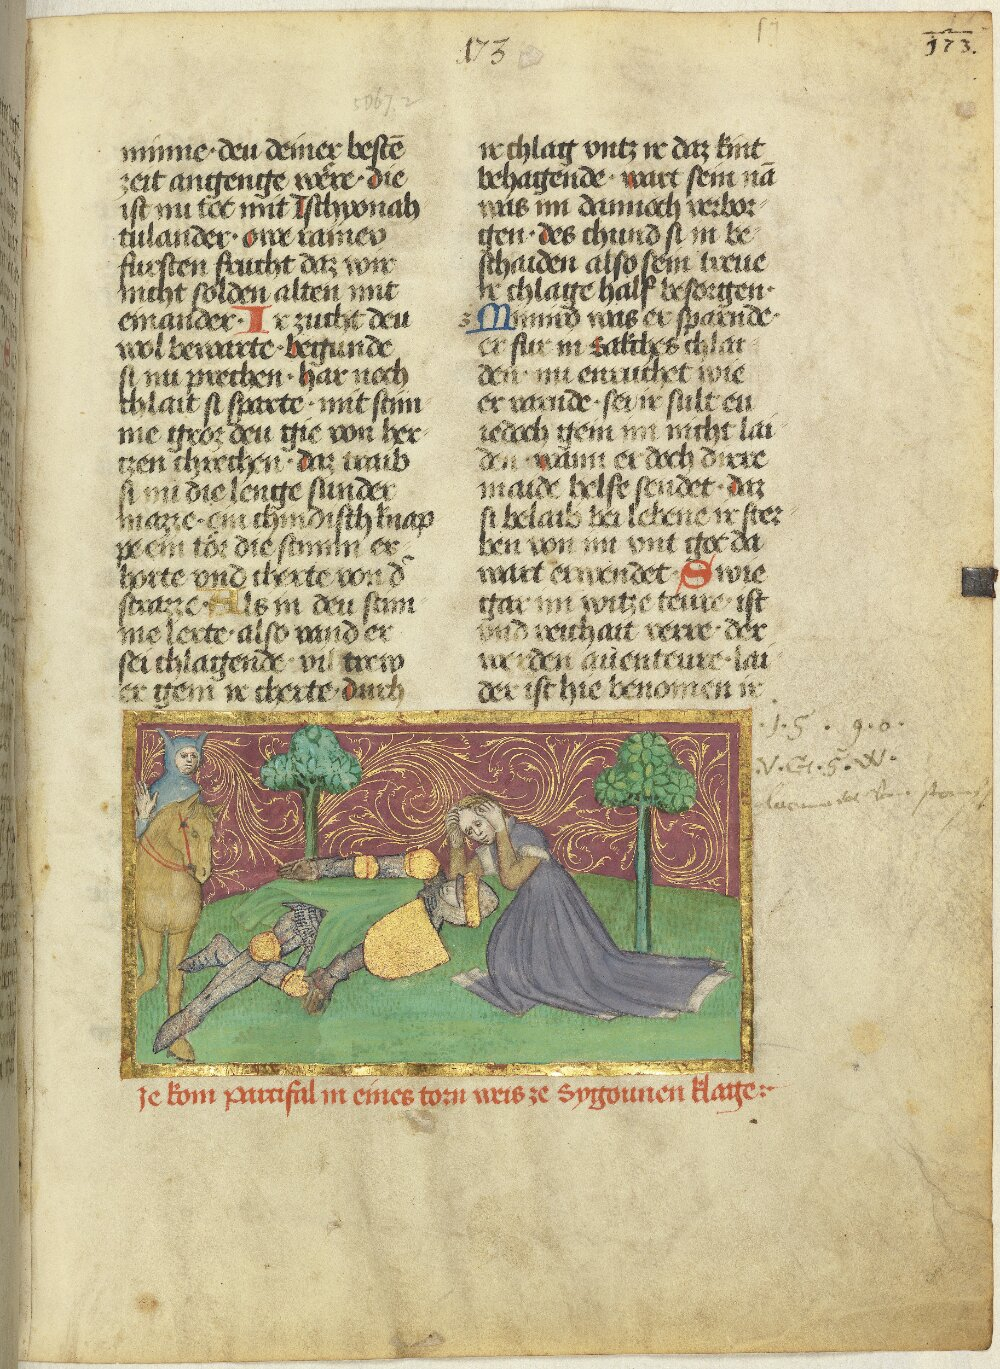 173
173.
5067,2
minne · deu deiner bestē
zeit angenge wêre · die
ist nu tot mit Tschyonah
tulander · owe ramev
fursten frucht daz wir
nicht solden alten mit
einander · Ir zucht deu
wol bewarte · begunde
si nu prechen · har noch
chlait si sparte · mit stim
me groz deu gie von her
tzen chrechen · daz traib
si nu die lenge sunder
mazze · ein chindisch knap
pe ein tor die stimm er
horte vnd cherte von d̄
strazze · Als in deu stim
me lerte · also vand er
sei chlagende · vil trew
er gein ir cherte · durch
ir chlag vntz ir daz kint
behagende · wart sein nā
was im dannoch verbor
gen · des chund si in be
schaiden also sein treue
ir chlage half besorgen ·
Nimind was er sparnde ·
er fur in chlai
den · nu enruchet wie
er varnde · sei ir sult eu
iedoch gein im nicht lai
den · wann er doch dirre
maide helfe sendet · daz
si belaib bei lebene ir ster
ben von im vnt got da
wart erwendet · Swie
gar im witze teure · ist
vnd reichait verre · der
werden auenteure · lai
der ist hie benomen ir
· 1 · 5 · 9 · 0 ·
· V · G · S · W ·
ze kom partifal in eines torn weis ze Sygounen klage :·